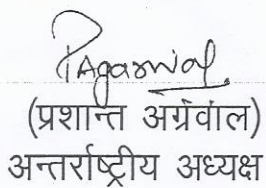 PAgarwal
(प्रशान्त अग्रवाल)
अन्तर्राष्ट्रीय अध्यक्ष